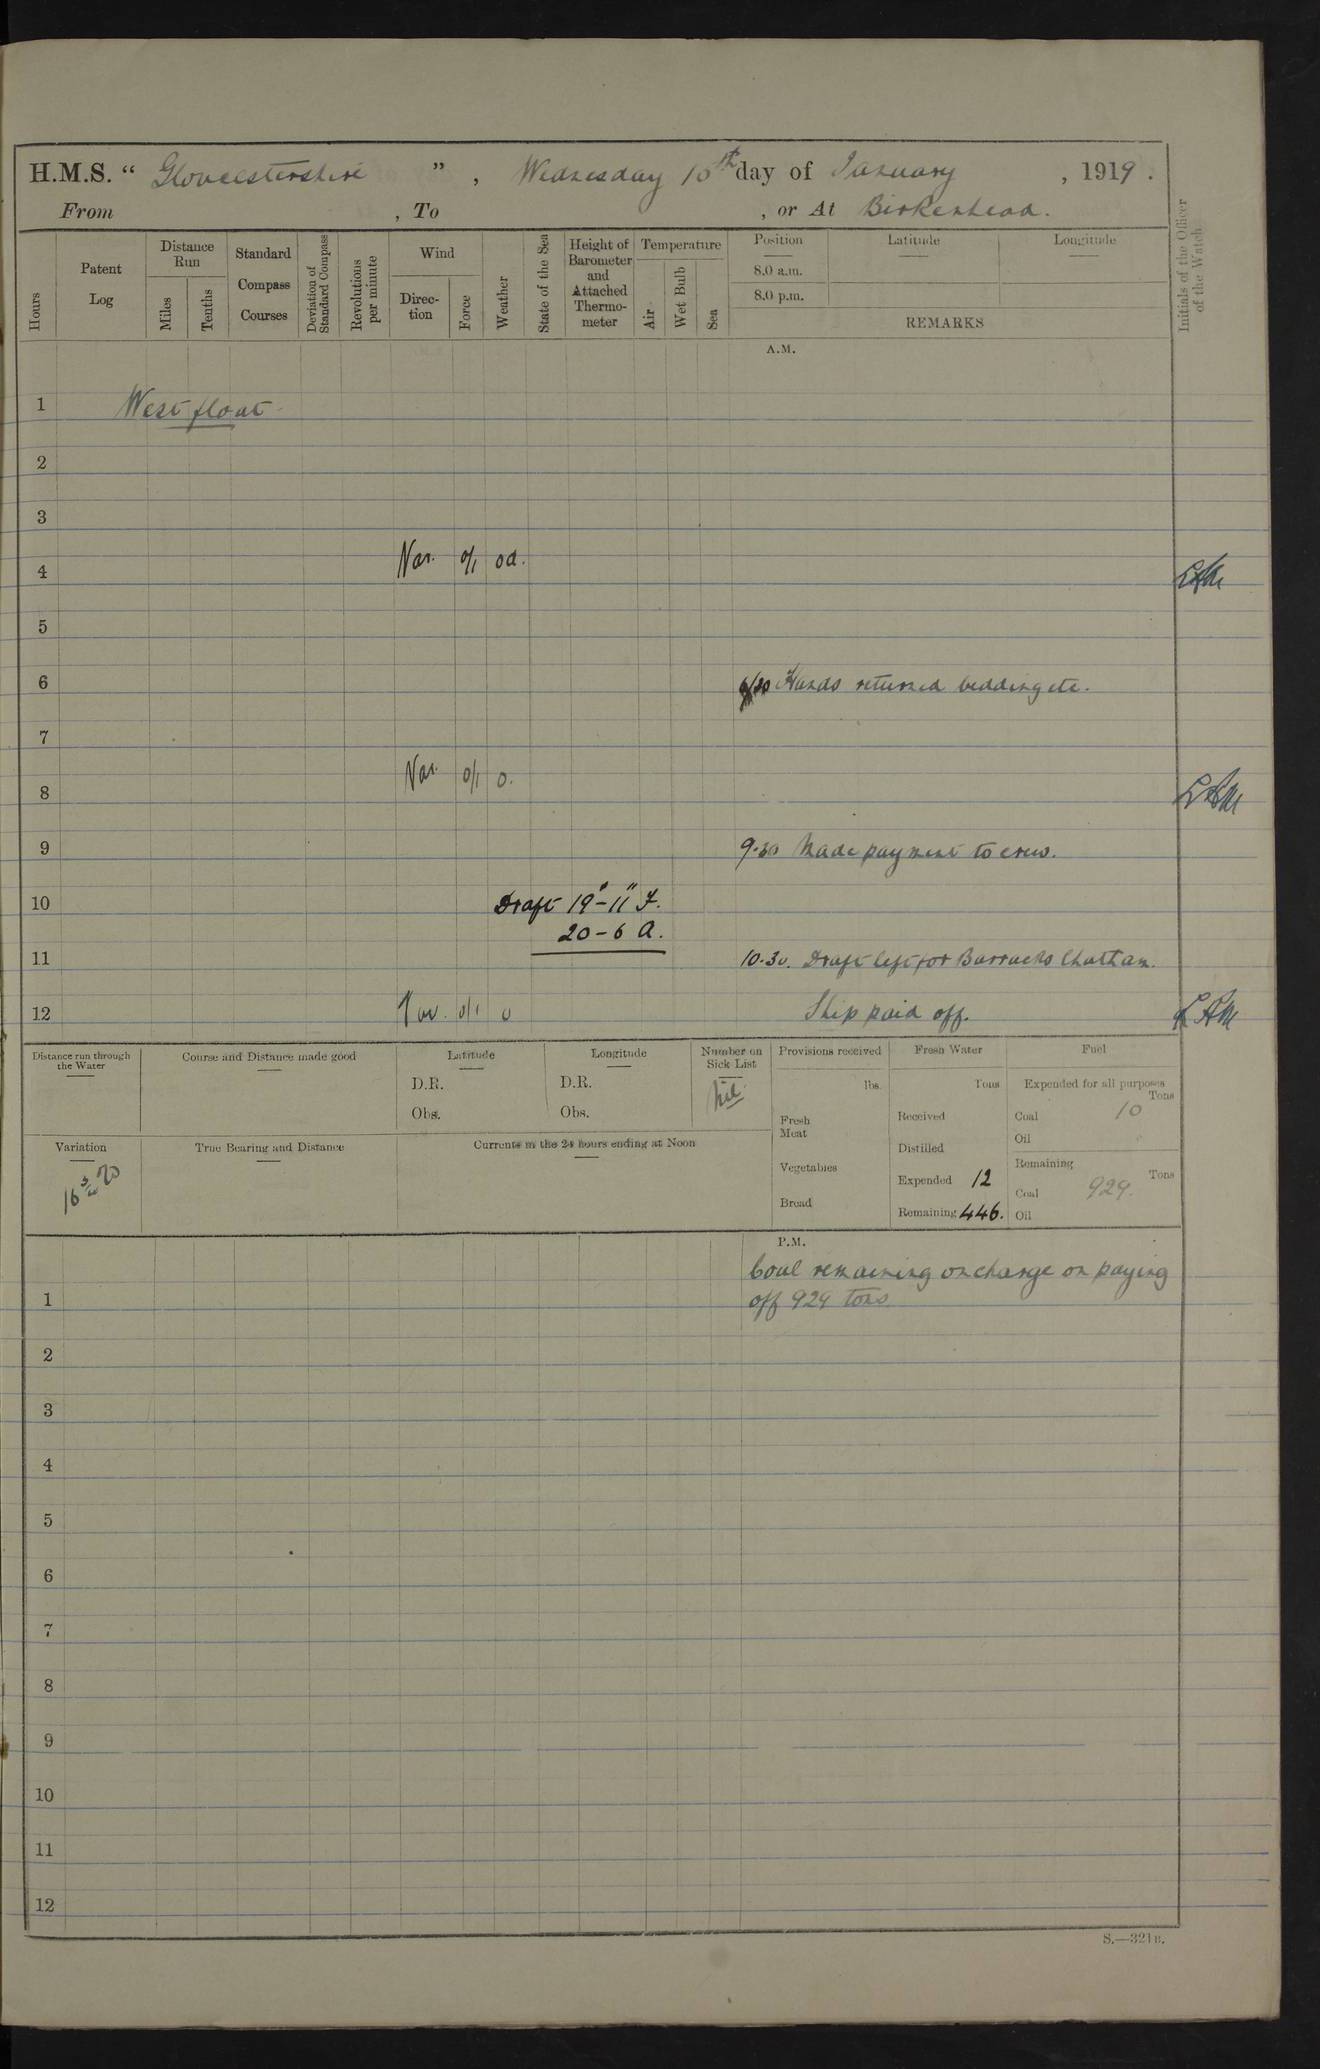 H.M.S. “ Gloucestershire ” , Wednesday 15th day of January , 1919 .
From , To , or At Birkenhead.
Hours
Patent Log
Distance Run
Miles
Tenths
Standard Compass Courses
Deviation of Standard Compass
Revolutions per minute
Wind
Direction
Force
Weather
State of the Sea
Height of Barometer and Attached Thermometer
Temperature
Air
Wet Bulb
Sea
Position
8.0 a.m.
8.0 p.m.
Latitude
Longitude
REMARKS
Initials of the Officer of the Watch.
A.M.
1 West float
2
3
4 Var. 0/1 od.
5
6 6/30 Hands returned bedding etc.
7
8 Var. 0/1 o. LAM
9 9.30 Made payment to crew.
10 Draft 19'-11" F.
20-6 A.
11 10.30. Draft left for Barracks Chatham.
12 Var. 0/1 o Ship paid off. LAM
Distance run through the Water
Course and Distance made good
Latitude
D.R.
Obs.
Longitude
D.R.
Obs.
Number on Sick List
Nil.
Provisions received
lbs.
Fresh Meat
Vegetables
Bread
Fresh Water
Tons
Received
Distilled
Expended 12
Remaining 446.
Fuel
Expended for all purposes
Tons
Coal 10
Oil
Remaining
Tons
Coal 929.
Oil
Variation
True Bearing and Distance
Currents in the 24 hours ending at Noon
P.M.
Coal remaining on charge on paying
1 off 929 tons
2
3
4
5
6
7
8
9
10
11
12
S.—321B.